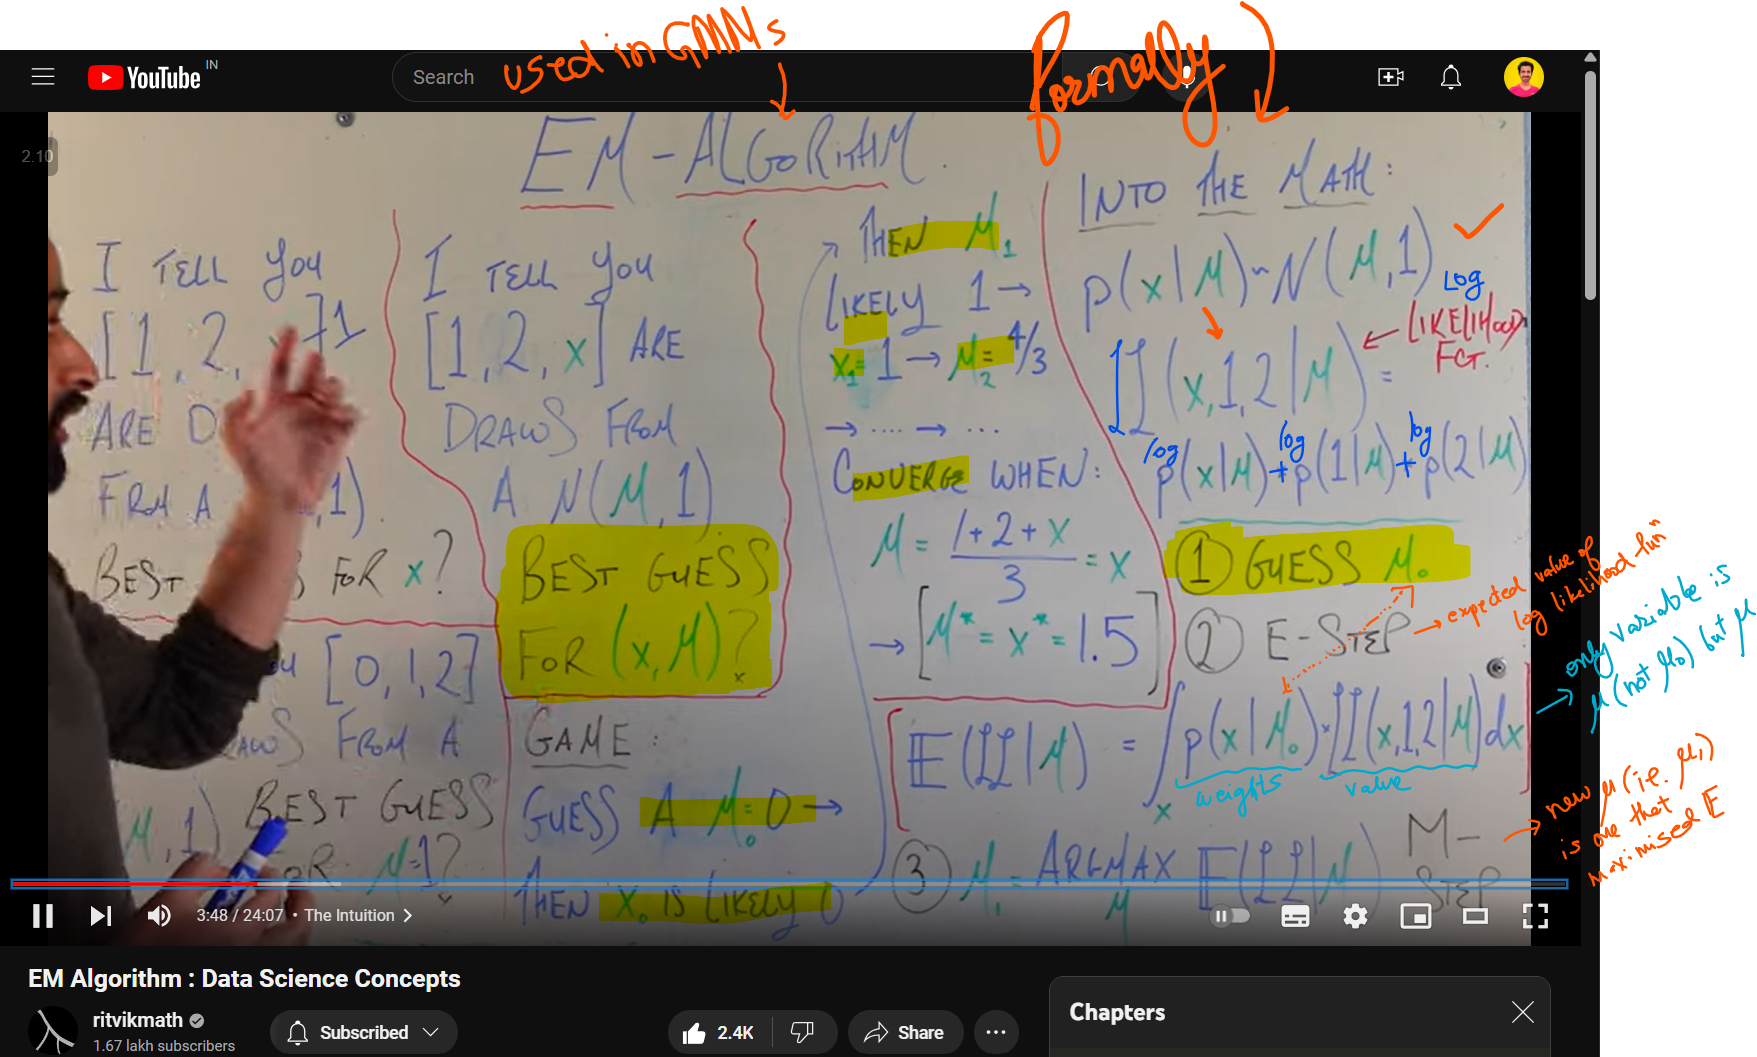 used in GMMs
formally
YouTube IN
Search
2.10
EM-ALGORITHM
I TELL YOU
[1, 2, 7]1
ARE D
FROM A ,1)
BEST FOR x?
[0,1,2]
DRAWS FROM A
M,1) BEST GUESS
FOR M=1?
I TELL YOU
[1,2,x] ARE
DRAWS FROM
A N(M,1)
BEST GUESS
FOR (x,M)?
GAME:
GUESS A M₀=0 →
THEN X₀ IS LIKELY 0
THEN M₁
LIKELY 1 →
X₁=1 → M₂= 4/3
→ .... → ...
CONVERGE WHEN:
M = 1+2+X / 3 = X
→ [M* = X* = 1.5]
INTO THE MATH:
p(x|M) ~ N(M,1)
log
LL(x,1,2|M) =
← LIKELIHOOD
FCT.
log p(x|M) + log p(1|M) + log p(2|M)
① GUESS M₀
② E-STEP
→ expected value of
log likelihood fun
E(LL|M) = ∫ p(x|M₀)·LL(x,1,2|M)dx
x
weights
value
→ only variable is
μ (not μ₀) but μ
③ M₁ = ARGMAX E(LL|M)
M
M-
STEP
→ new μ (i.e. μ₁)
is one that
maximised E
3:48 / 24:07 • The Intuition
EM Algorithm : Data Science Concepts
ritvikmath
1.67 lakh subscribers
Subscribed
2.4K
Share
Chapters